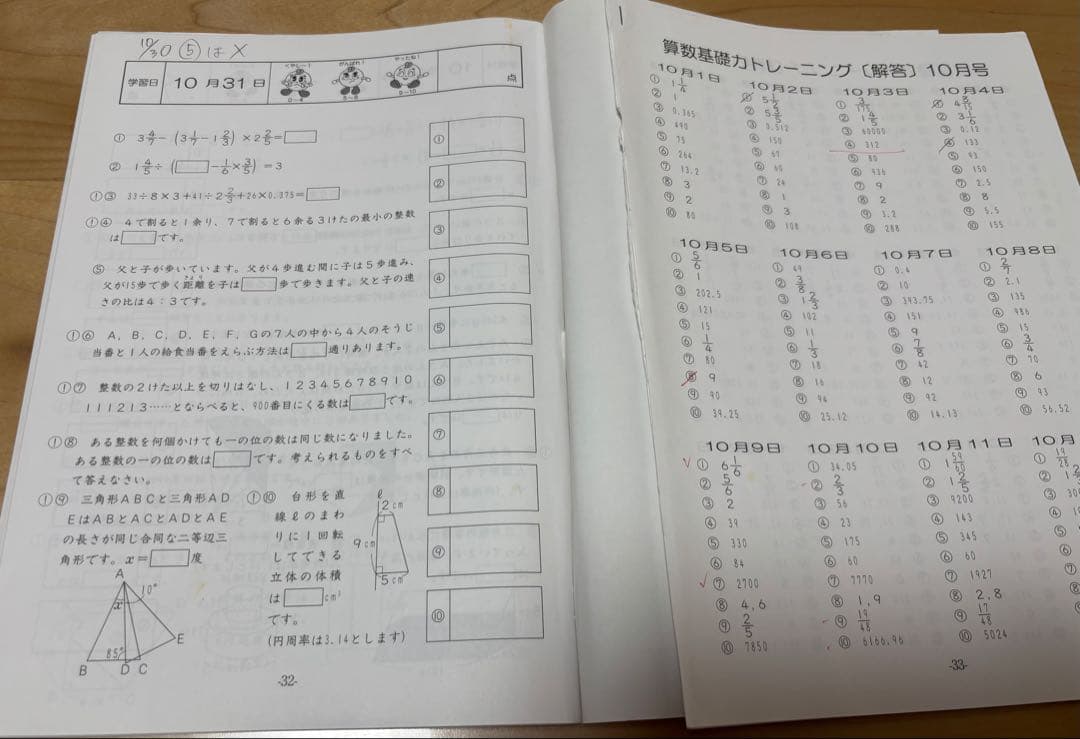 10/30 ⑤は×
学習日 10月31日
くやしー! がんばれ! やったね!
0〜4 5〜8 9〜10
点
① 3 4/7−(3 1/7−1 2/3)×2 2/5=□
② 1 4/5÷(□−1/6×3/5)=3
①③ 33÷8×3+41÷2 2/3+26×0.375=□
①④ 4で割ると1余り、7で割ると6余る3けたの最小の整数
は□です。
⑤ 父と子が歩いています。父が4歩進む間に子は5歩進み、
父が15歩で歩く距離を子は□歩で歩きます。父と子の速
さの比は4:3です。
①⑥ A、B、C、D、E、F、Gの7人の中から4人のそうじ
当番と1人の給食当番をえらぶ方法は□通りあります。
①⑦ 整数の2けた以上を切りはなし、12345678910
111213……とならべると、900番目にくる数は□です。
①⑧ ある整数を何個かけても一の位の数は同じ数になりました。
ある整数の一の位の数は□です。考えられるものをすべ
て答えなさい。
①⑨ 三角形ABCと三角形AD
EはABとACとADとAE
の長さが同じ合同な二等辺三
角形です。x=□度
A
10°
x
E
85°
B D C
①⑩ 台形を直
線ℓのまわ
りに1回転
してできる
立体の体積
は□cm³
です。
(円周率は3.14とします)
ℓ
2cm
9cm
5cm
①
②
③
④
⑤
⑥
⑦
⑧
⑨
⑩
-32-
算数基礎力トレーニング〔解答〕10月号
10月1日
① 1 1/4
② 1
③ 0.365
④ 690
⑤ 75
⑥ 264
⑦ 13.2
⑧ 3
⑨ 2
⑩ 80
10月2日
① 5 1/4
② 5 3/5
③ 0.512
④ 150
⑤ 60
⑥ 60
⑦ 26
⑧ 1
⑨ 3
⑩ 108
10月3日
① 3/175
② 1 4/5
③ 60000
④ 312
⑤ 80
⑥ 936
⑦ 9
⑧ 2
⑨ 3.2
⑩ 288
10月4日
① 4 5/15
② 3 1/6
③ 0.12
④ 133
⑤ 93
⑥ 150
⑦ 2.5
⑧ 8
⑨ 5.5
⑩ 155
10月5日
① 5/6
② 1
③ 202.5
④ 121
⑤ 15
⑥ 1/4
⑦ 80
⑧ 9
⑨ 90
⑩ 39.25
10月6日
① 49
② 3/8
③ 1 2/3
④ 102
⑤ 11
⑥ 1/3
⑦ 18
⑧ 16
⑨ 96
⑩ 25.12
10月7日
① 0.4
② 10
③ 393.75
④ 151
⑤ 9
⑥ 7/8
⑦ 42
⑧ 12
⑨ 92
⑩ 14.13
10月8日
① 2/7
② 2.1
③ 135
④ 986
⑤ 15
⑥ 3/4
⑦ 70
⑧ 6
⑨ 93
⑩ 56.52
10月9日
① 6 1/6
② 5/6
③ 2
④ 39
⑤ 330
⑥ 84
⑦ 2700
⑧ 4,6
⑨ 2/5
⑩ 7850
10月10日
① 34.05
② 2/3
③ 56
④ 23
⑤ 175
⑥ 60
⑦ 7770
⑧ 1,9
⑨ 19/48
⑩ 6166.96
10月11日
① 1 59/60
② 1 2/5
③ 9200
④ 143
⑤ 345
⑥ 60
⑦ 1927
⑧ 2,8
⑨ 17/48
⑩ 5024
10月
① 19/28
②
③
④
⑤
⑥
⑦
⑧
⑨
⑩
-33-